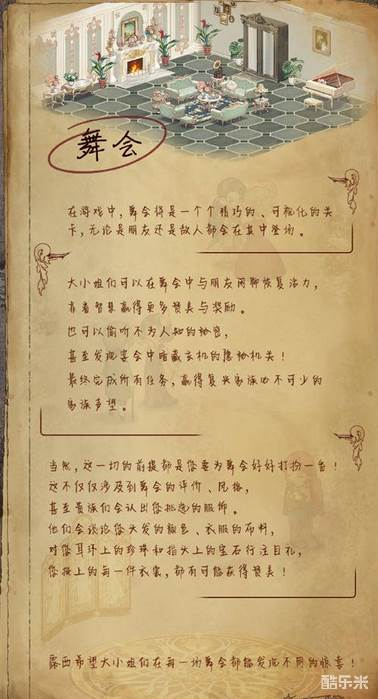 舞会
在游戏中，舞会将是一个个精巧的、可视化的关
卡，无论是朋友还是敌人都会在其中登场。
大小姐们可以在舞会中与朋友闲聊恢复活力，
靠着智慧赢得更多赞美与奖励。
也可以偷听不为人知的秘密，
甚至发现宴会中暗藏玄机的隐秘机关！
最终完成所有任务，赢得复兴家族必不可少的
家族声望。
当然，这一切的前提都是您要为舞会好好打扮一番！
这不仅仅涉及到舞会的评价、风格，
甚至贵族们会认出您挑选的服饰。
他们会谈论您头发的颜色、衣服的布料，
对您耳环上的珍珠和指头上的宝石行注目礼，
您换上的每一件衣裳，都有可能获得赞美！
露西希望大小姐们在每一场舞会都能发现不同的惊喜！
酷乐米